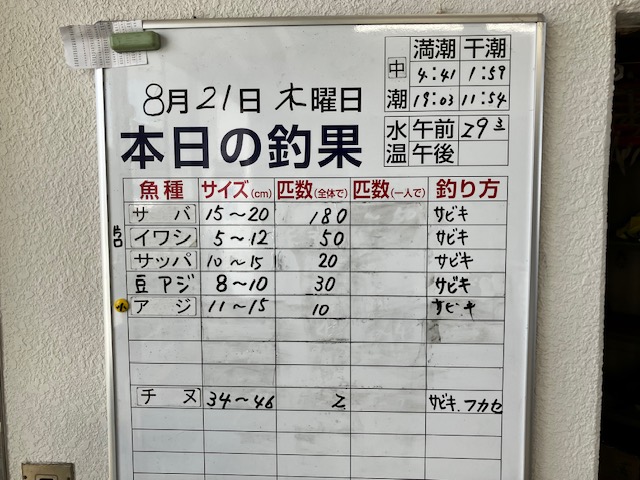 満潮 干潮
中潮 4:41 1:59
19:03 11:54
8月21日 木曜日
水温 午前 29.3
午後
本日の釣果
魚種 サイズ(cm) 匹数(全体で) 匹数(一人で) 釣り方
サバ 15~20 180 サビキ
片口 イワシ 5~12 50 サビキ
サッパ 10~15 20 サビキ
豆アジ 8~10 30 サビキ
小 アジ 11~15 10 サビキ
チヌ 34~46 2 サビキ.フカセ